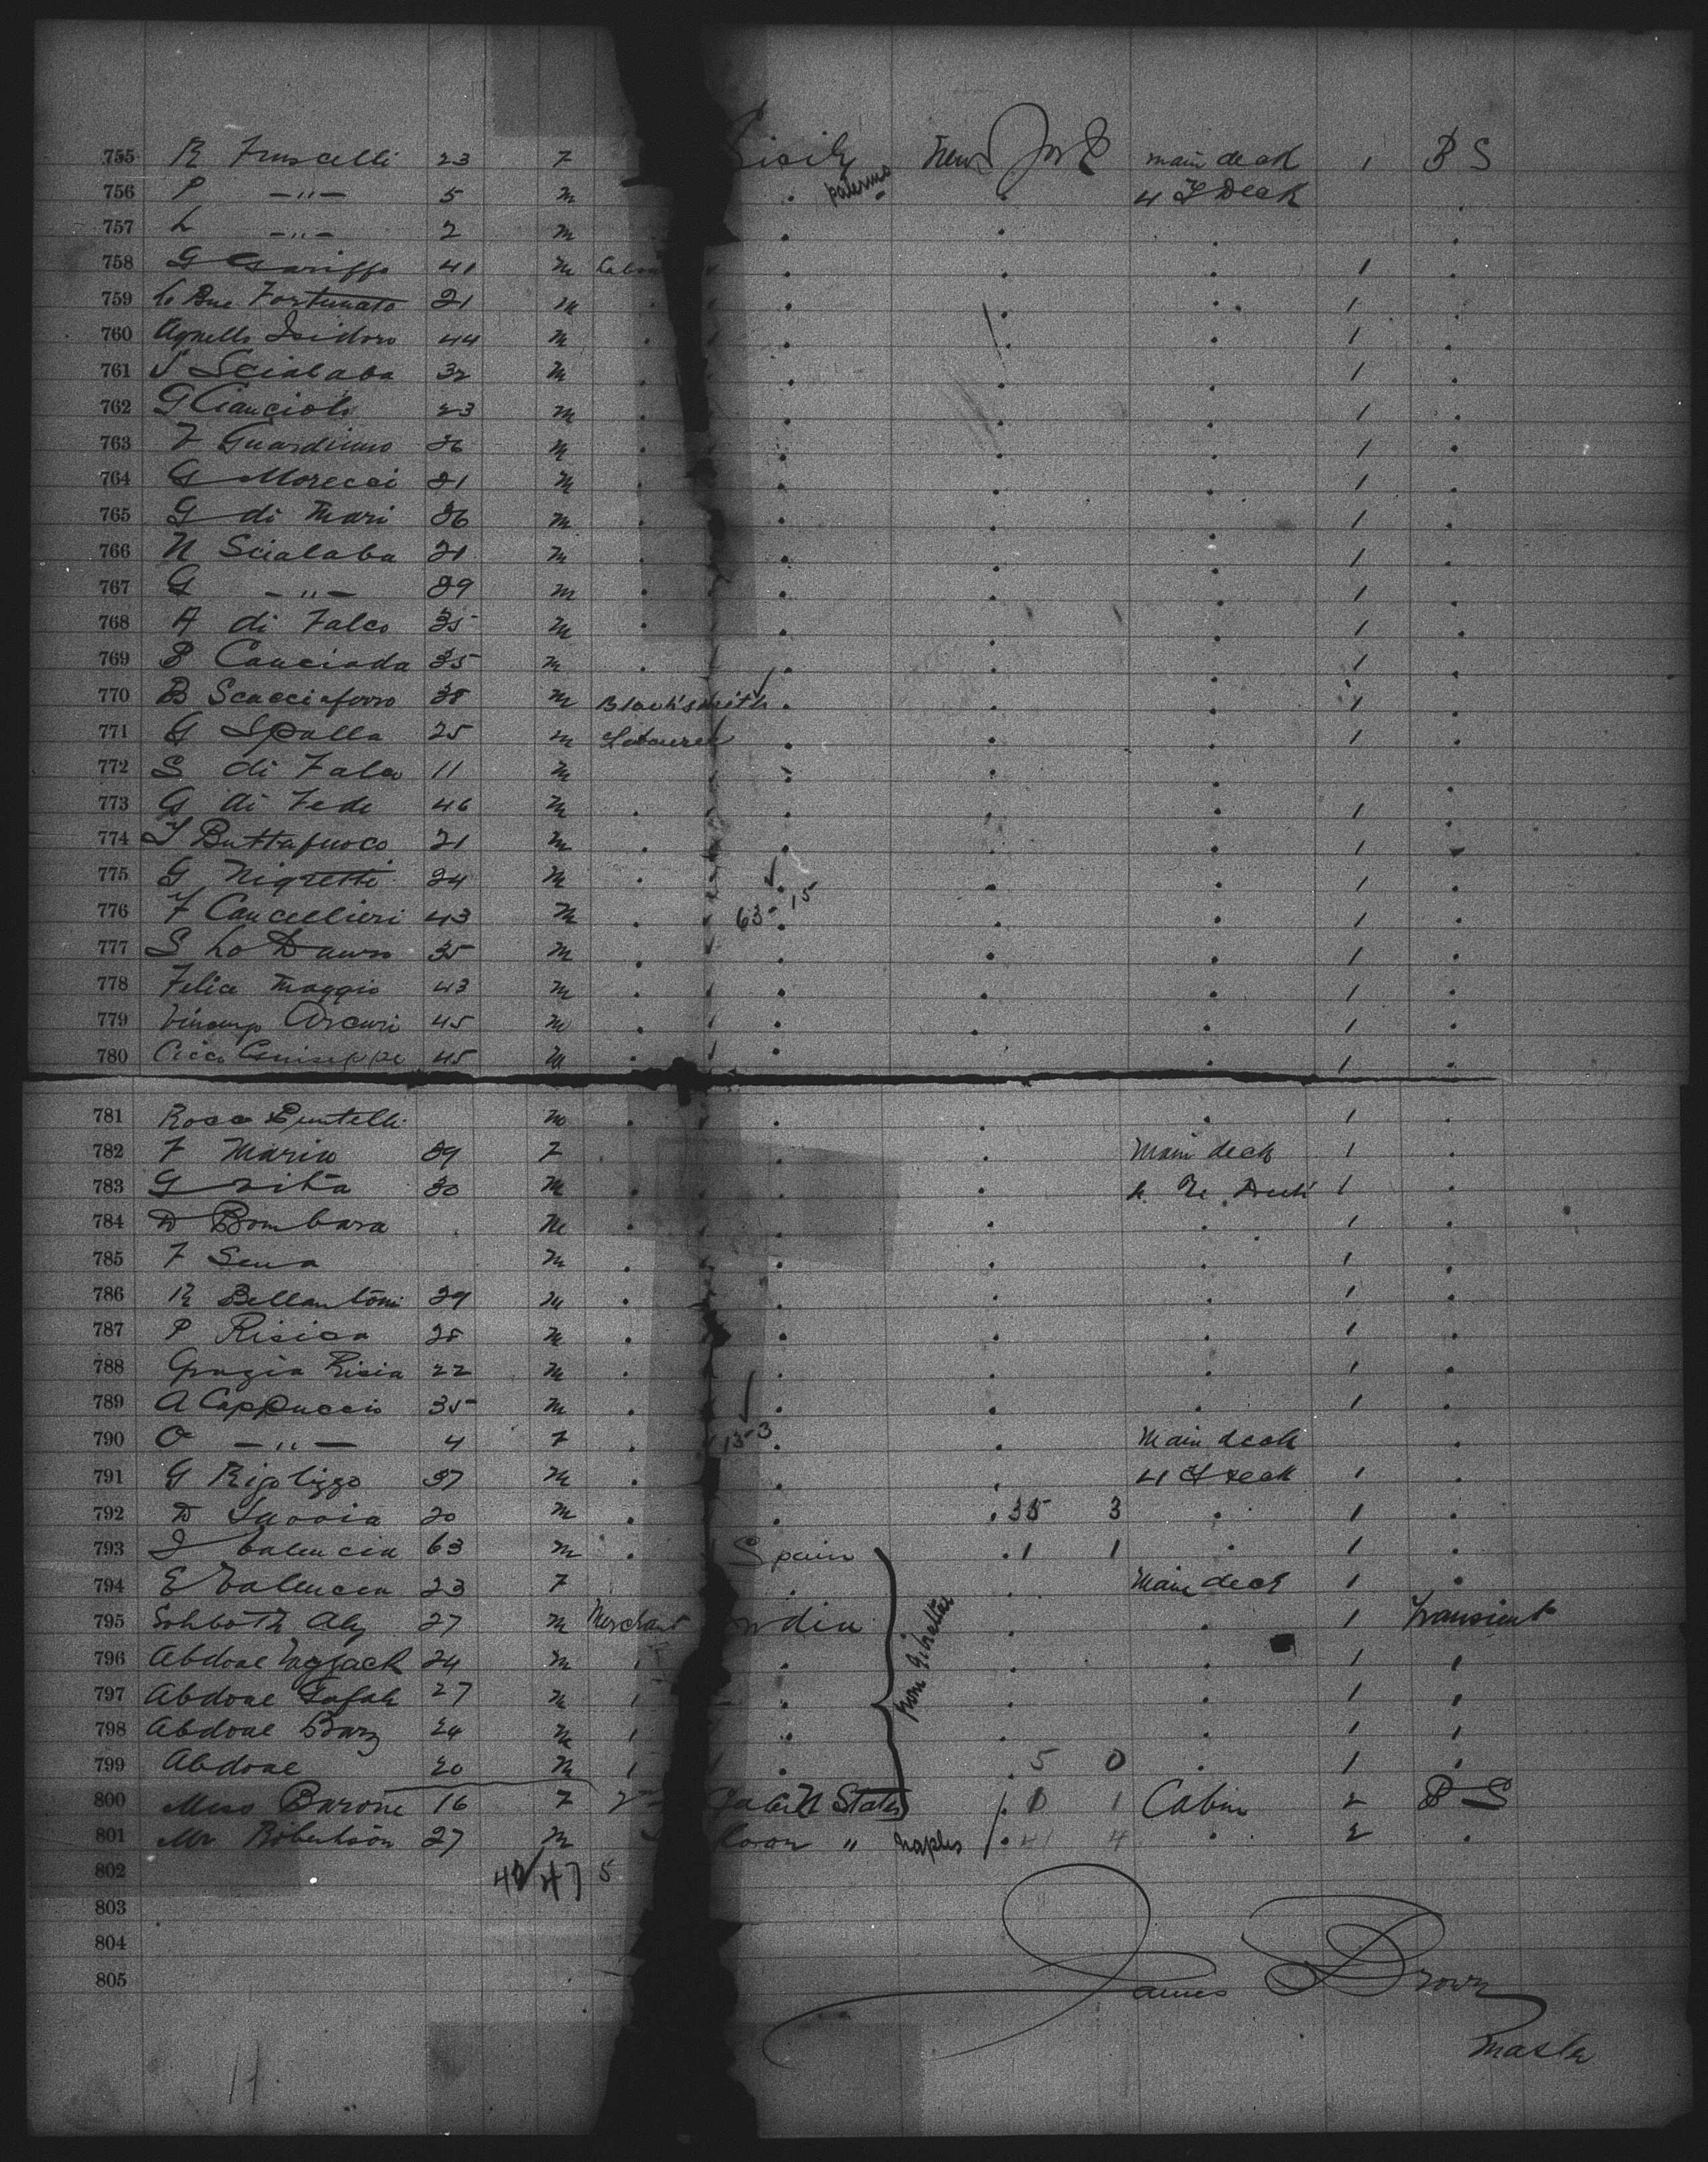 755 R Fruscelli 23 F Sicily New York main deck 1 B S
756 P —"— 5 m palermo 4 F Deck
757 L —"— 2 m
758 G Gariffo 41 m Labou 1
759 Lo Bue Fortunato 21 m 1
760 Agnello Isidoro 44 m 1
761 S Scialaba 32 m 1
762 G Cancioli 23 m 1
763 F Guardino 26 m 1
764 G Morecci 21 m 1
765 G di Mari 26 m 1
766 N Scialaba 21 m 1
767 G —"— 29 m 1
768 A di Falco 35 m 1
769 B Canciada 35 m 1
770 B Scacciaferro 38 m Blacksmith 1
771 G Spalla 25 m Labourer 1
772 S di Falco 11 m
773 G di Fede 46 m 1
774 Buttafuoco 21 m 1
775 G Nigretti 24 m 1
776 F Cancellieri 43 m 63 - 15 1
777 S Lo Dauro 35 m 1
778 Felice Maggio 43 m 1
779 Vincenzo Arcuri 45 m 1
780 Cicco Guiseppe 45 m 1
781 Rocco m 1
782 F Maria 29 F Main deck 1
783 G Zita 30 m 1
784 D Bombara m 1
785 F Sena m 1
786 R Bellantoni 29 m 1
787 P Risica 28 m 1
788 Grazia Risia 22 m 1
789 A Cappuccio 35 m 1
790 O —"— 4 F 13-3 Main deck
791 G Rigolizzo 37 m 4 F deck 1
792 D Savoia 20 m 35 3 1
793 J Valencia 63 m Spain 1 1 1
794 E Valencia 23 F Main deck 1
795 Sohboth Aly 27 m Merchant India from Gibraltar 1 Transient
796 Abdoal 24 m 1
797 Abdoal Gafah 27 m 1
798 Abdoal Barz 24 m 1
799 Abdoal 20 m 5 0 1
800 Miss Barone 16 F States 0 1 Cabin 2 B S
801 Mr Robertson 27 m " naples 41 4 2
802 47 5
803
804
805
James Brown
Master
11